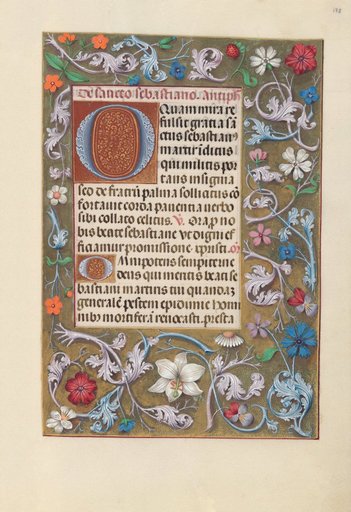 De sancto sebastiano. Antiph
Quam mira re
fulsit gratia sā
ctus sebastian
martir iclitus
qui militis por
tans insignia
sed de fratrū palma sollicitus cō
fortavit corda pauentia verbo
sibi collato celitus. V. Ora p no
bis beate sebastiane Vt digni ef
ficiamur promissione xpristi. or
Omnipotens sempiterne
deus qui meritis beati se
bastiani martiris tui quandā
generalē pestem epidimie homi
nibus mortiferā reuocasti. presta